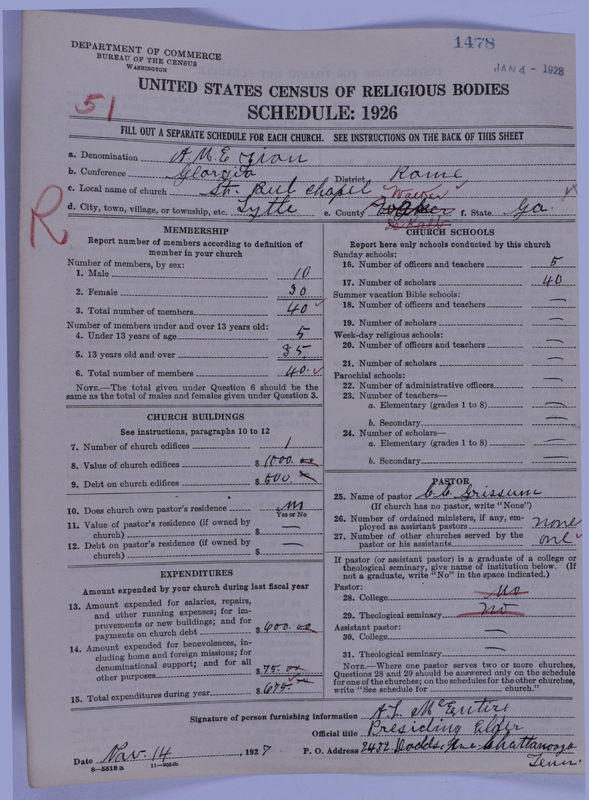 1478
JAN 4 - 1928
DEPARTMENT OF COMMERCE
BUREAU OF THE CENSUS
WASHINGTON
UNITED STATES CENSUS OF RELIGIOUS BODIES
SCHEDULE: 1926
51
FILL OUT A SEPARATE SCHEDULE FOR EACH CHURCH. SEE INSTRUCTIONS ON THE BACK OF THIS SHEET
a. Denomination A.M.E Zion
b. Conference Georgia District Rome
c. Local name of church St. Paul Chapel
Walker
d. City, town, village, or township, etc. Lytle e. County f. State Ga.
R
MEMBERSHIP
Report number of members according to definition of member in your church
Number of members, by sex:
1. Male 10
2. Female 30
3. Total number of members 40
Number of members under and over 13 years old:
4. Under 13 years of age 5
5. 13 years old and over 35
6. Total number of members 40
NOTE.—The total given under Question 6 should be the same as the total of males and females given under Question 3.
CHURCH BUILDINGS
See instructions, paragraphs 10 to 12
7. Number of church edifices 1
8. Value of church edifices $1000.00
9. Debt on church edifices $500.00
10. Does church own pastor's residence? No
Yes or No
11. Value of pastor's residence (if owned by church) $ —
12. Debt on pastor's residence (if owned by church) $ —
EXPENDITURES
Amount expended by church during last fiscal year
13. Amount expended for salaries, repairs, and other running expenses; for improvements or new buildings; and for payments on church debt $600.00
14. Amount expended for benevolences, including home and foreign missions; for denominational support; and for all other purposes $75.00
15. Total expenditures during year $675.00
CHURCH SCHOOLS
Report here only schools conducted by this church
Sunday schools:
16. Number of officers and teachers 5
17. Number of scholars 40
Summer vacation Bible schools:
18. Number of officers and teachers —
19. Number of scholars —
Week-day religious schools:
20. Number of officers and teachers —
21. Number of scholars —
Parochial schools:
22. Number of administrative officers —
23. Number of teachers—
a. Elementary (grades 1 to 8) —
b. Secondary —
24. Number of scholars—
a. Elementary (grades 1 to 8) —
b. Secondary —
PASTOR
25. Name of pastor C.C. Grissum
(If church has no pastor, write "None")
26. Number of ordained ministers, if any, employed as assistant pastors none
27. Number of other churches served by the pastor or his assistants one
If pastor (or assistant pastor) is a graduate of a college or theological seminary, give name of institution below. (If not a graduate, write "No" in the space indicated.)
Pastor:
28. College No
29. Theological seminary No
Assistant pastor:
30. College —
31. Theological seminary —
NOTE.—Where one pastor serves two or more churches, Questions 28 and 29 should be answered only on the schedule for one of the churches; on the schedules for the other churches, write "See schedule for ________ church."
Signature of person furnishing information A.L. McEntire
Official title Presiding Elder
Date Nov. 14, 1927 P. O. Address 2472 Dodds Ave Chattanooga
Tenn.
8-5518 a